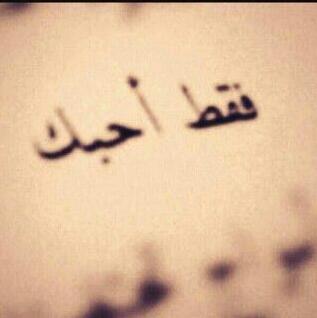 فقط أحبك